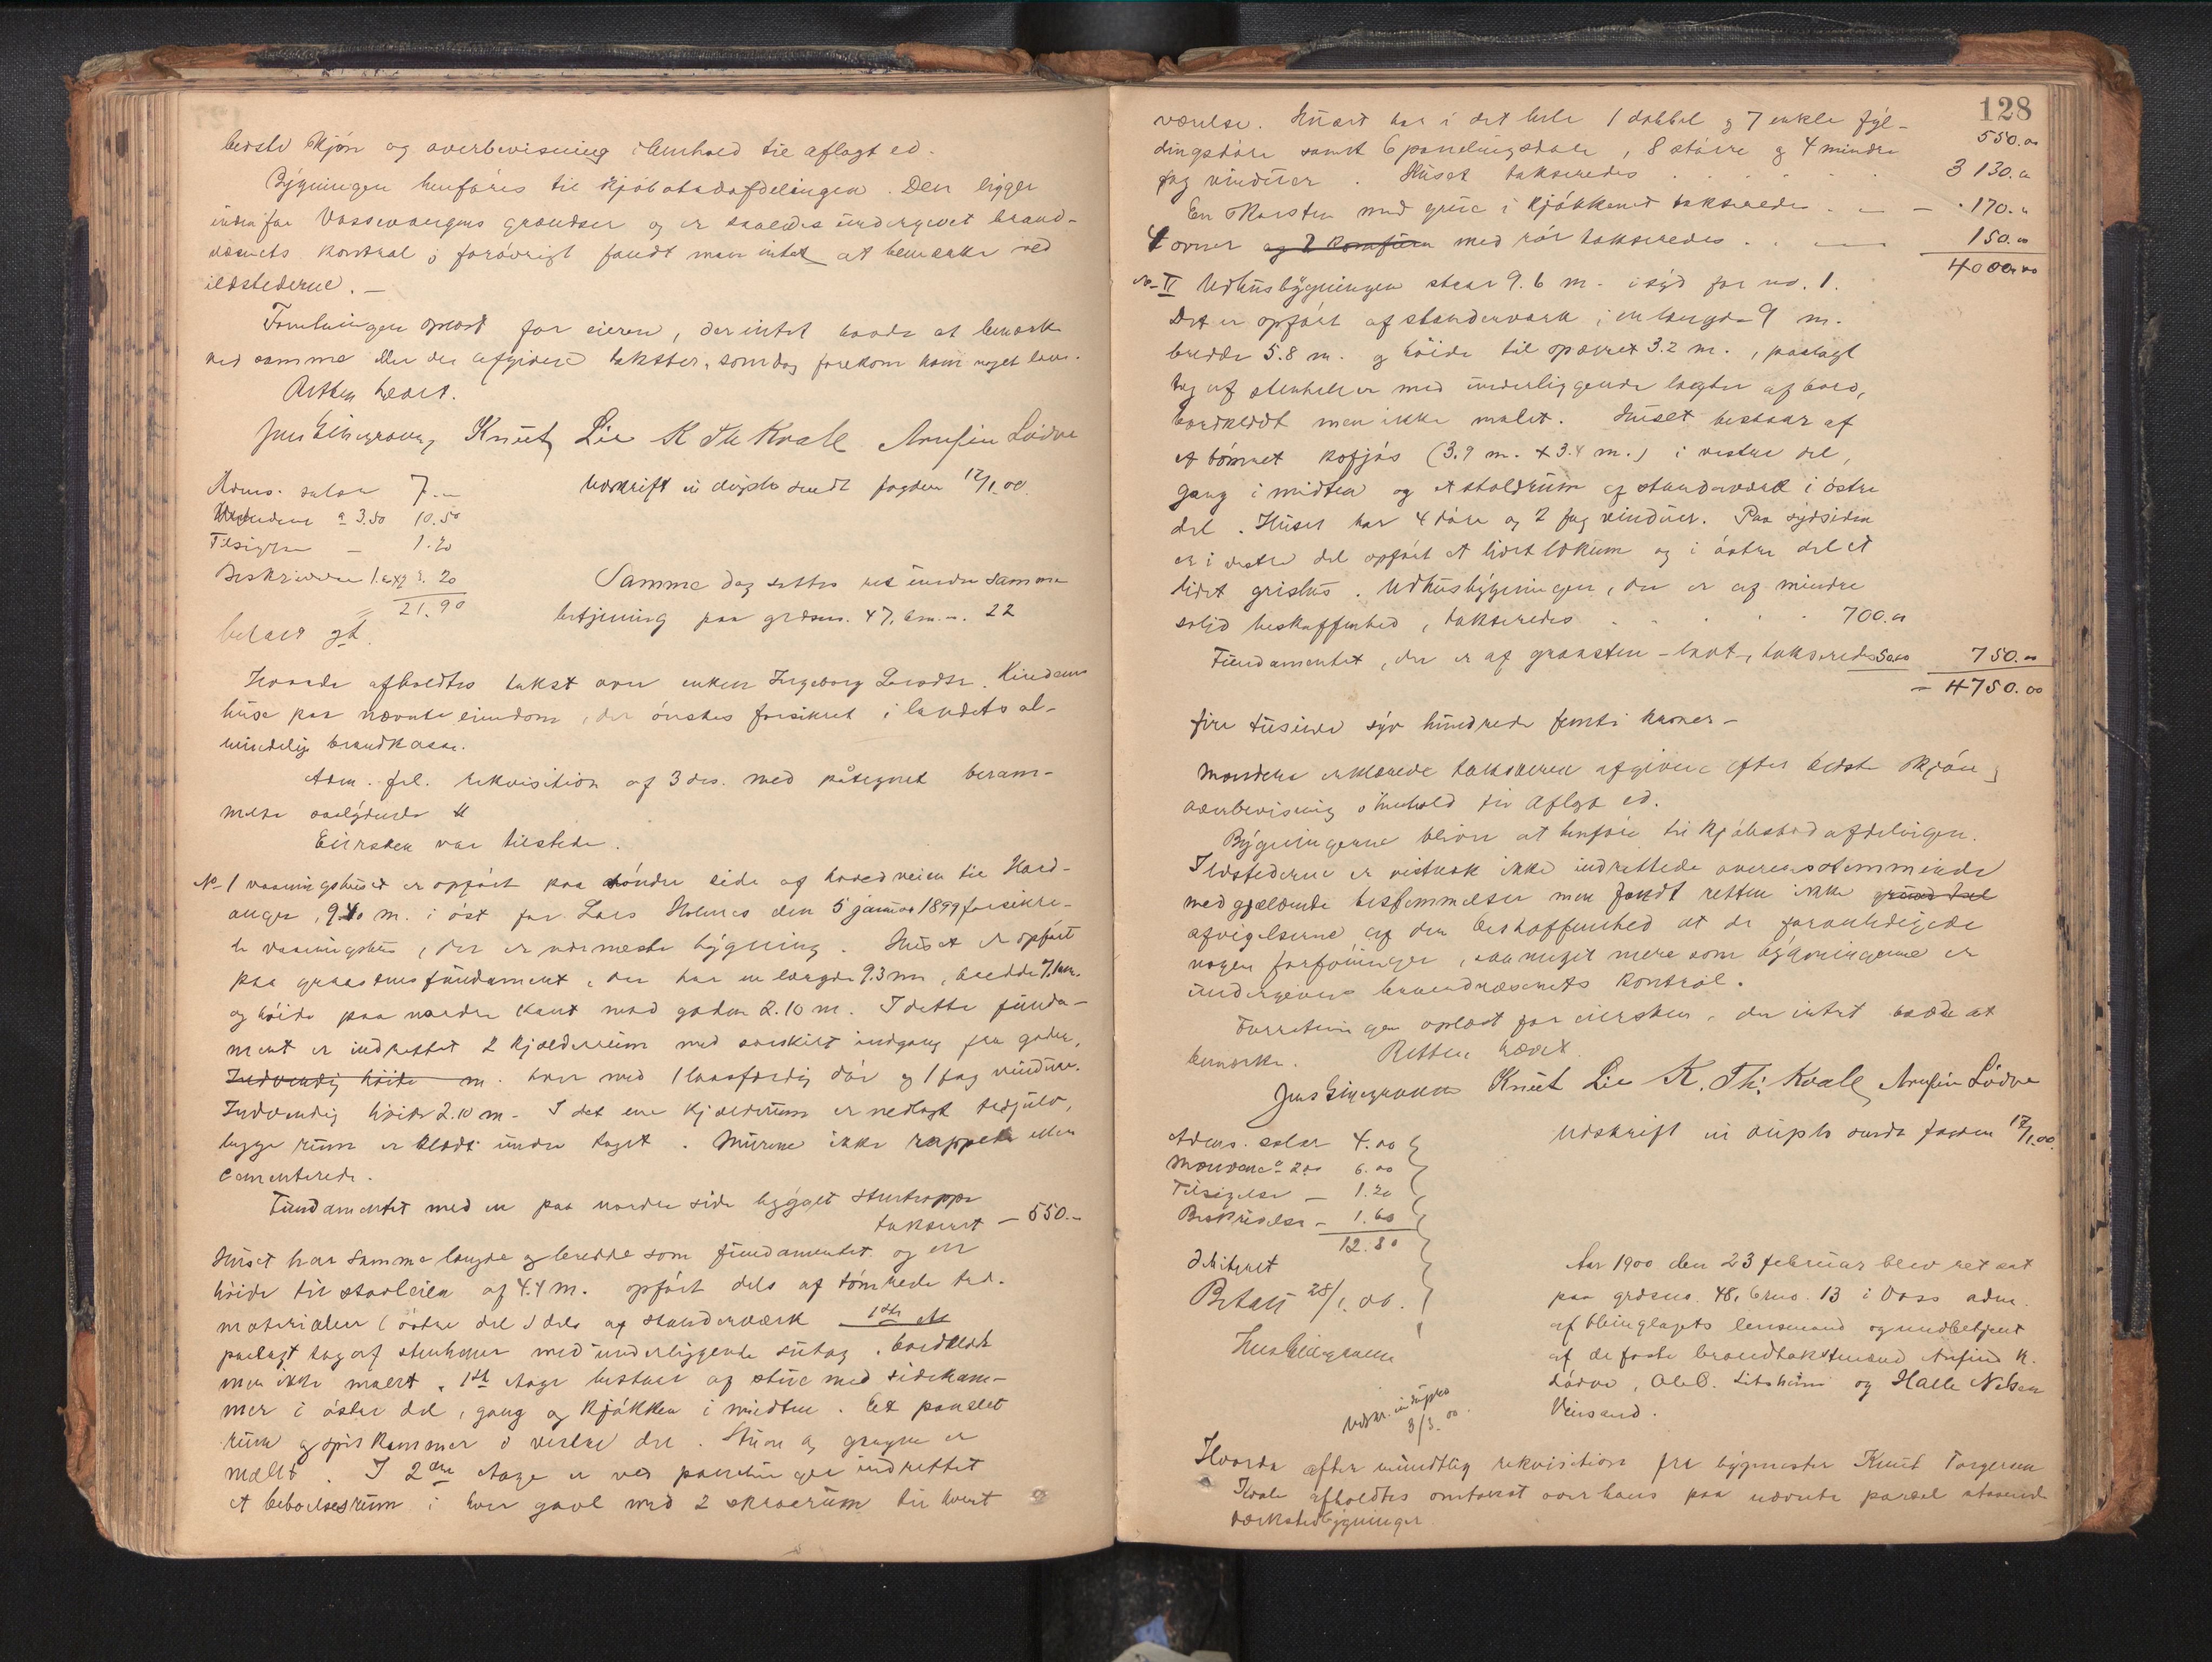 bedste skjøn og overbevisning i henhold til aflagt ed.
Bygningen henføres til kjøbstadafdelingen. Den ligger
indenfor Vossevangens grændser og er saaledes undergivet brand-
væsenets kontrol; forøvrigt fandt man intet at bemærke ved
ildstederne. —
Forretningen oplæst for eieren, der intet havde at bemærke
ved samme eller de afgivne takster, som dog forekom ham noget lave.
Retten hævet.
Jens Gjergræn Knut Lie K Th Kvale Arnfin Lødve
Adms. salær 7.—
Mændene a 3.50 10.50
Tilsigelse — 1.20
Beskrivelse 3.20
21.90
betalt
Udskrift in duplo sendt fogden 12/1.00.
Samme dag sattes ret under samme
betjening paa grdsno. 47, brn. 22
Hvorda afholdtes takst over enken Ingeborg Larsdtr. Kindems
huse paa nævnte eiendom, der ønskes forsikret i landets al-
mindelige brandkasse.
Adm. frl. rekvisition af 3 ds. med påtegnet beram-
melse saalydende #
Eiersken var tilstede.
No 1 vaaningshuset er opført paa søndre side af hovedveien til Hard-
anger, 9.40 m. i øst for Lars Holmes den 5 januar 1899 forsikre-
de vaaningshus, der er nærmeste bygning. Huset er opført
paa graastensfundament, der har en længde 9.3 m, bredde 7.1 m.
og høide paa nordre kant mod gaden 2.10 m. I dette funda-
ment er indrettet 2 kjælderrum med særskilt indgang fra gaden,
Indvendig høide m. hver med 1 laasfærdig dør og 1 fag vindue.
Indvendig høide 2.10 m. I det ene kjælderrum er nedlagt trægulv,
begge rum er klædt under taget. Murene ikke rappede eller
cementerede.
Fundamentet med en paa nordre side bygget stentrappe
takseret — 550.—
Huset har samme længde og bredde som fundamentet og en
høide til stavleien af 4.4 m. opført dels af tømrede træ-
materialer (østre del) dels af standerværk 1ste et
paalagt tag af stenheller med underliggende sutag, bordklædt
men ikke malet. 1ste etage bestaar af stue med sidekam-
mer i østre del, gang og kjøkken i midten. Et panelet
rum og spiskammer i vestre del. Stuen og gangen er
malet. I 2den etage er ved panelinger indrettet
et beboelsesrum i hver gavl med 2 skraarum til hvert
128
værelse. Huset har i det hele 1 dobbel og 7 enkle fyl-
dingsdøre samt 6 panelingsdøre, 8 større og 4 mindre
550.00
fag vinduer. Huset takseredes . . . 3 130.00
En skorsten med grue i kjøkkenet takseredes . . — 170.00
4 ovner og 2 komfurer med rør takseredes . . — 150.00
4000.00
No II Udhusbygningen staar 9.6 m. i syd for no. 1.
Det er opført af standerværk i en længde 9 m.
bredde 5.8 m. og høide til opværet 3.2 m., paalagt
tag af stenheller med underliggende lægter af bord,
bordklædt men ikke malet. Huset bestaar af
et tømret kofjøs (3.9 m. x 3.4 m.) i vestre del,
gang i midten og et staldrum af standerværk i østre
del. Huset har 4 døre og 2 fag vinduer. Paa sydsiden
er i vestre del opført et lidet lokum og i østre del et
lidet grishus. Udhusbygningen, der er af mindre
solid beskaffenhed, takseredes . . . . 700.00
Fundamentet, der er af graasten — lavt, takseredes 50.00 750.00
— 4750.00
fire tusinde syv hundrede femti kroner —
Mændene erklærede taksterne afgivne efter bedste skjøn og
overbevisning i henhold til aflagt ed.
Bygningerne bliver at henføre til kjøbstadafdelingen.
Ildstederne er vistnok ikke indrettede overensstemmende
med gjældende bestemmelser men fandt retten ikke grund til
afvigelserne af den beskaffenhed at de foranledigede
nogen forføininger, saa meget mere som bygningerne er
undergivne brandvæsenets kontrol.
Forretningen oplæst for eiersken, der intet havde at
bemærke. Retten hævet.
Jens Gjergræn Knut Lie K. Th. Kvale Arnfin Lødve
Adms. salær 4.00
Mændene a 2.00 6.00
Tilsigelse — 1.20
Beskrivelse — 1.60
12.80
Debiteret
Betalt 28/1.00.
Udskrift in duplo sendt fogden 12/1.00.
Aar 1900 den 23 februar blev ret sat
paa grdsno. 48, brno. 13 i Voss adm.
af thinglagets lensmand og medbetjent
af de faste brandtakstmænd Arnfind K.
Lødve, Ole B. Litsheim og Halle Nilsen
Vinsand.
Udskr. in duplo
3/3.00.
Hvorda efter mundtlig rekvisition fra bygmester Knut Torgersen
Kvale afholdtes omtakst over hans paa nævnte parcel staaende
værkstedbygninger